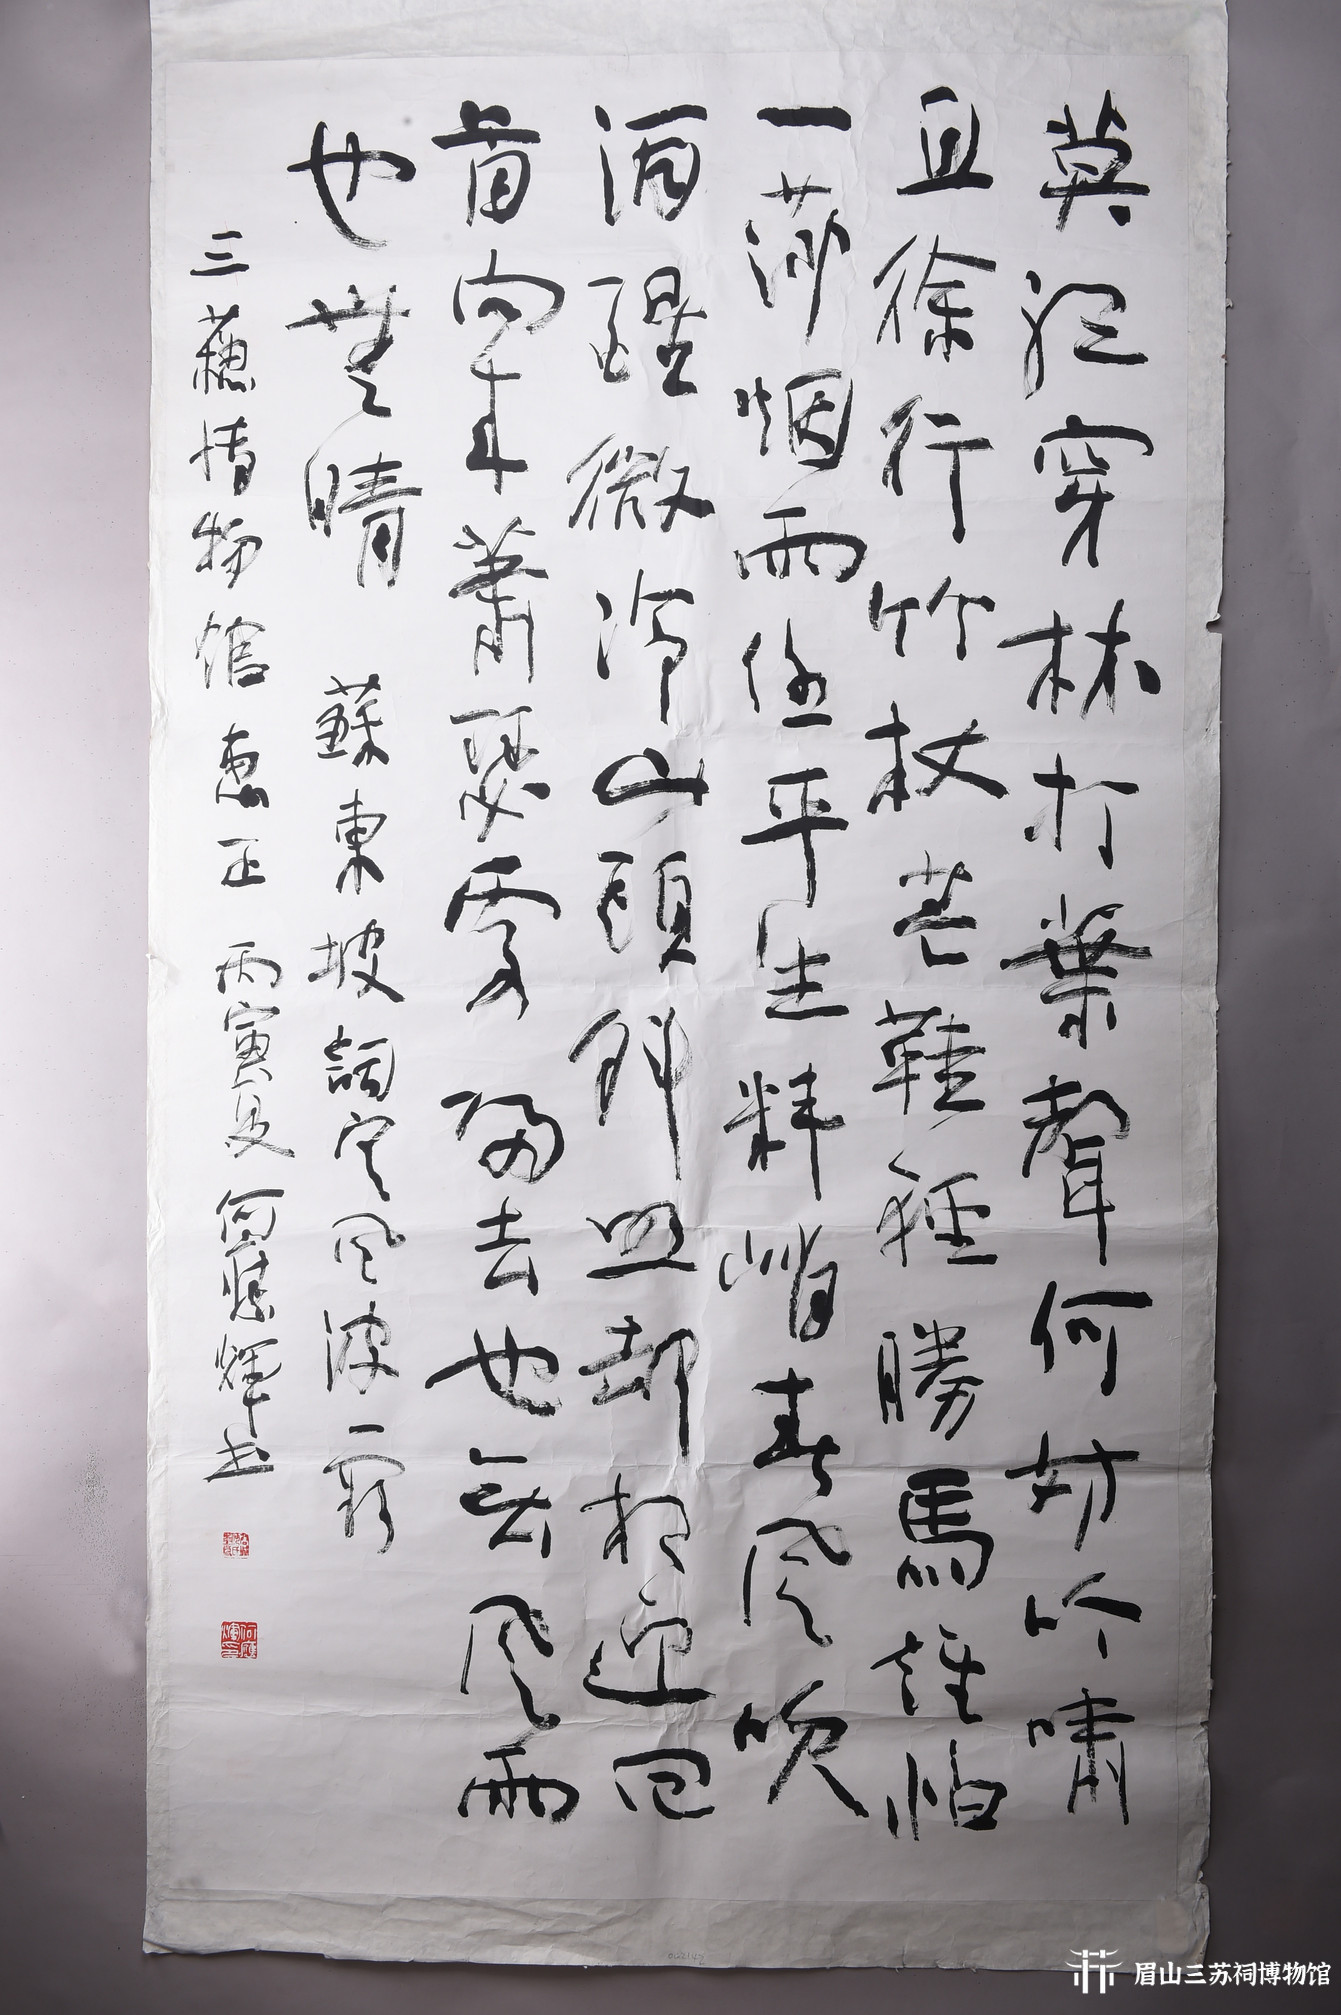 莫聽穿林打葉聲何妨吟嘯
且徐行竹杖芒鞋輕勝馬誰怕
一莎烟雨任平生料峭春風吹
酒醒微冷山頭斜照却相迎回
首向来蕭瑟處歸去也无風雨
也無晴 蘇東坡詞定風波一闋
三蘇博物館惠正 丙寅夏 何應輝书
何應輝印
眉山三苏祠博物馆